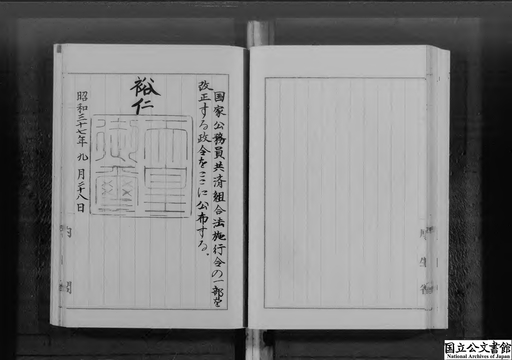 国家公務員共済組合法施行令の一部を
改正する政令をここに公布する。
裕仁
天皇
御璽
昭和三十七年九月二十八日
内閣
国立公文書館
National Archives of Japan